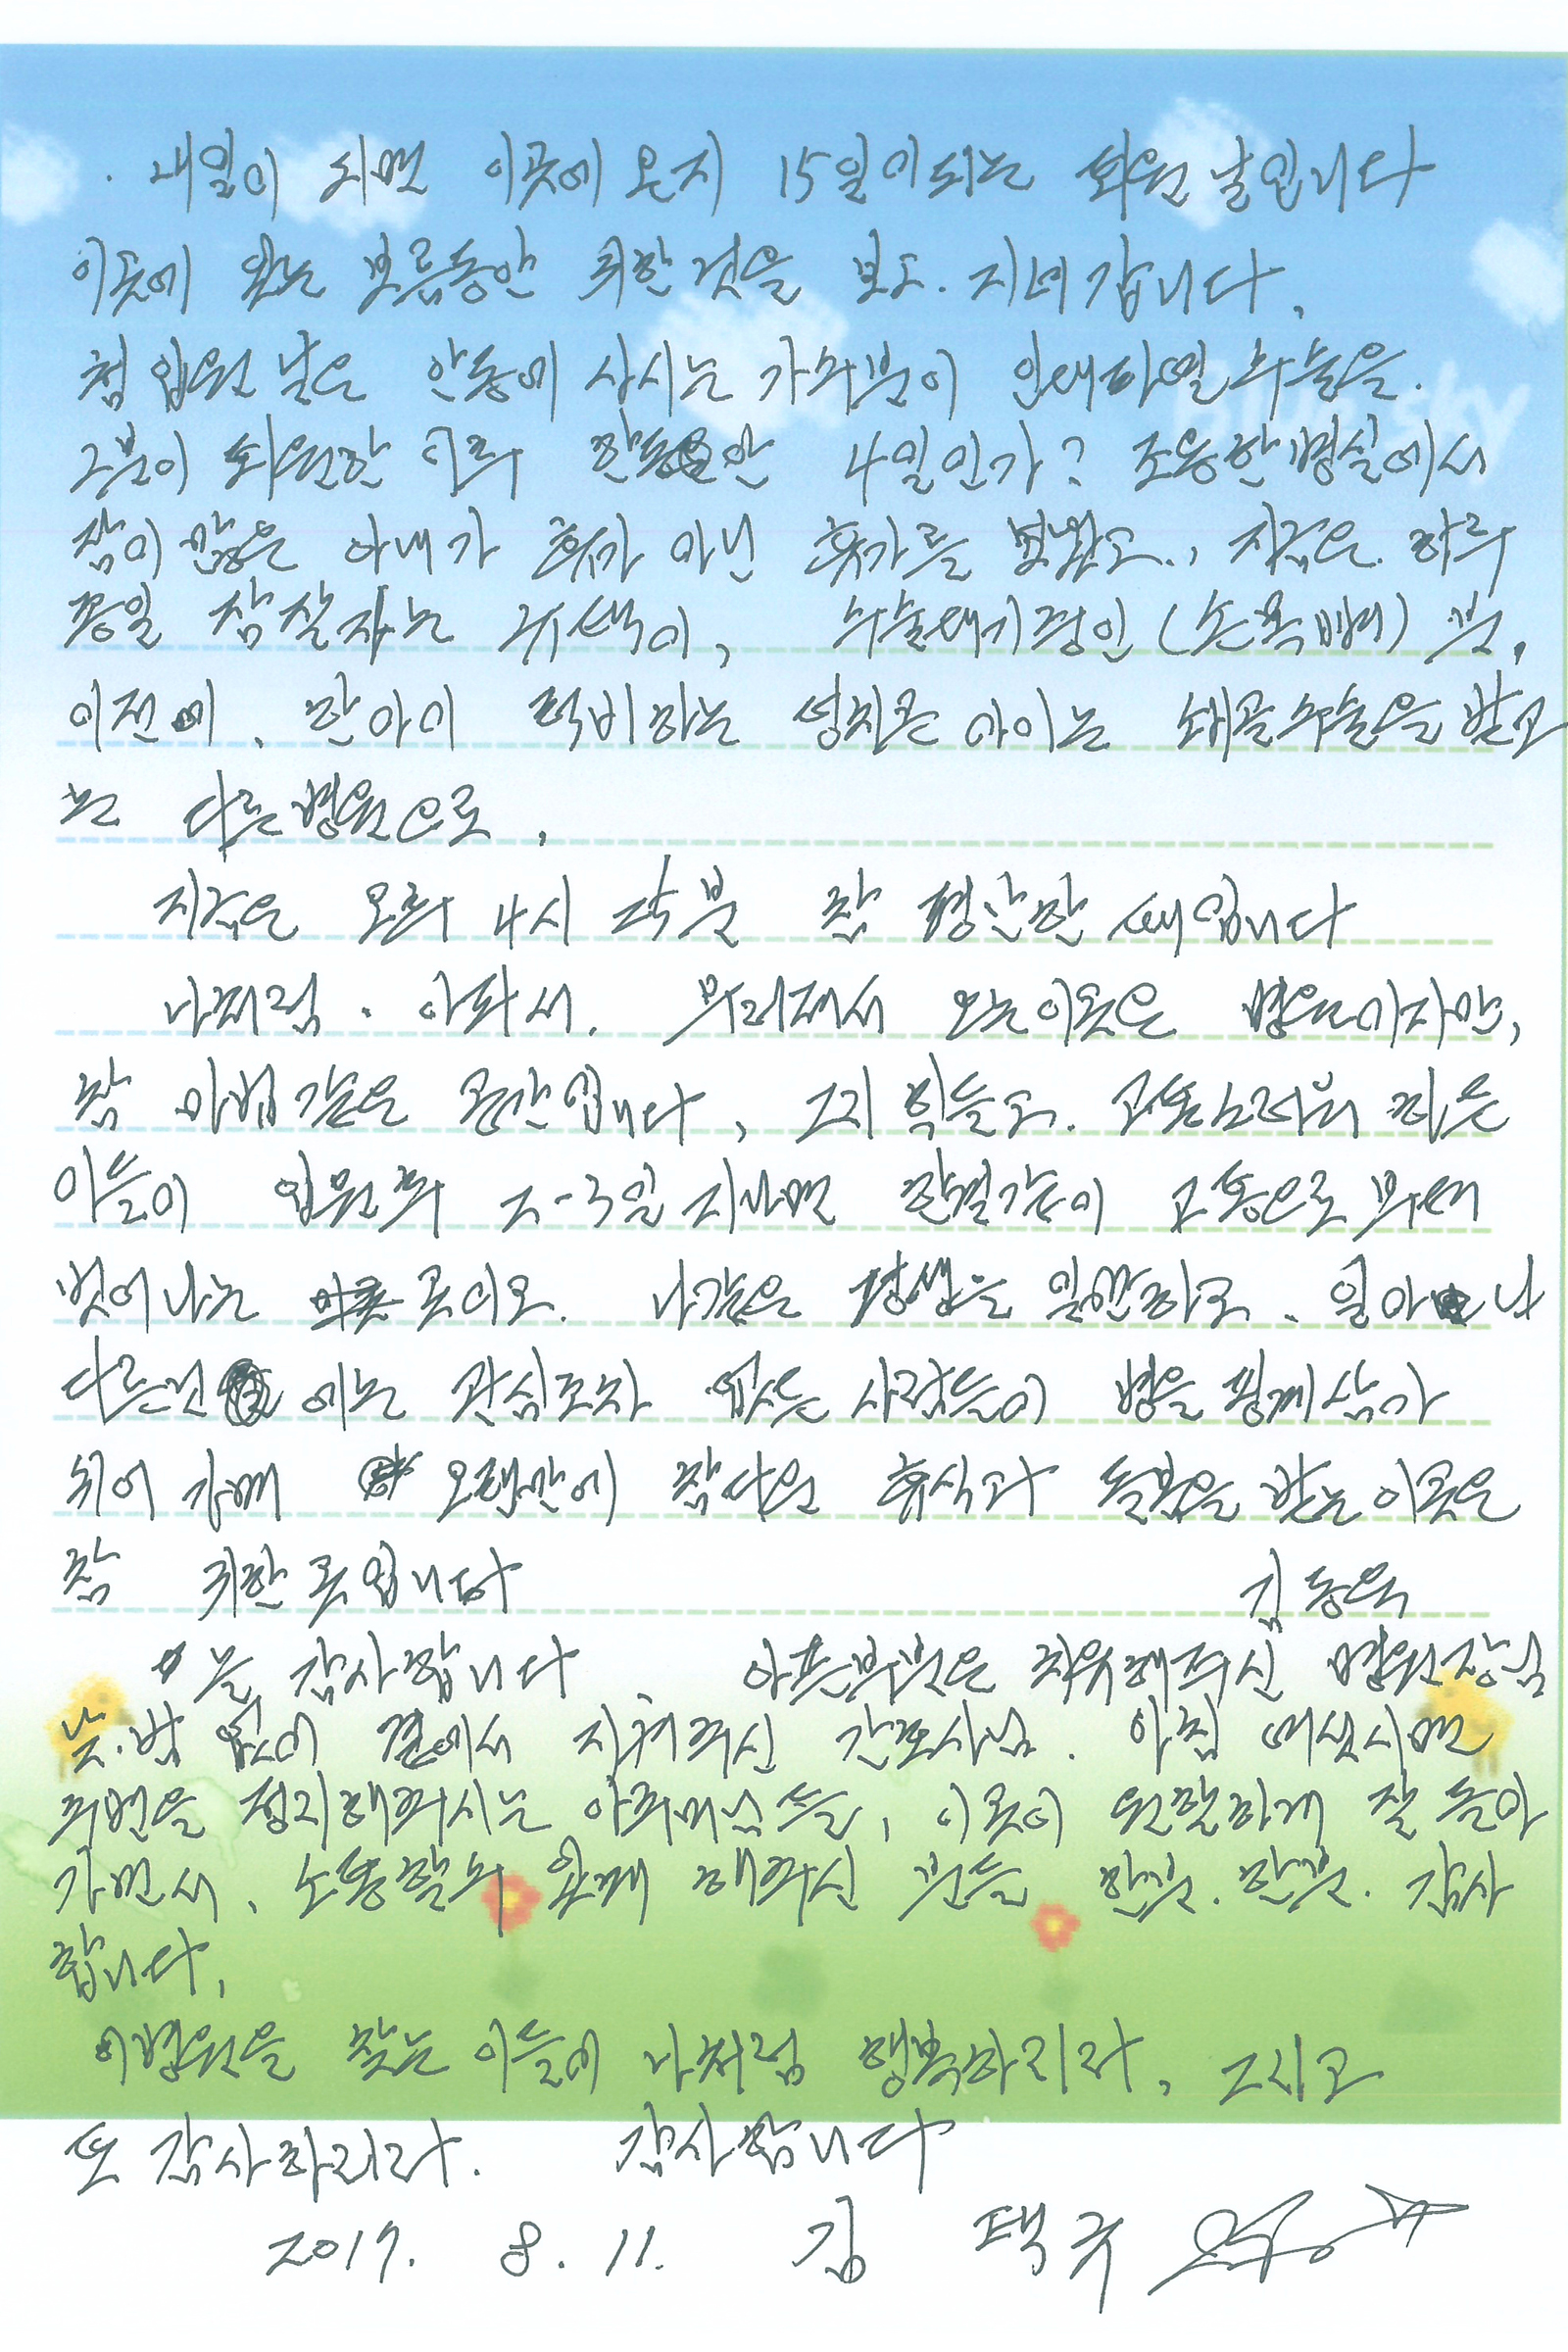 내일이 되면 이곳에 온지 15일이되는 퇴원 날입니다
이곳에 있는 보름동안 귀한것을 보고. 지녀갑니다.
첨 입원 날은 안동에 사시는 가수분이 인대파열수술을.
그분이 퇴원한 이후 한동안 4일인가? 조용한병실에서
잠이 많은 아내가 휴가 아닌 휴가를 보냈고., 지금은 하루
종일 잠잘자는 규색이, 수술대기중인 (손목뼈) 분.
이전에. 한아이 덩치큰 아이는 쇄골수술을 받고
는 다른병원으로.
지금은 오후 4시 참 평안한 때입니다
나처럼. 아파서. 무리해서 오는이곳은 병원이지만,
참 마법같은 공간입니다, 그리 힘들고. 고통스러워 하는
이들이 입원후 2-3일 지나면 한결같이 고통으로 부터
벗어나는 곳이오. 나같은 평생을 일만하고. 일아니
다른것에는 관심조차 없는 사람들이 병을 핑계삼아
쉬어 가매 오랜만에 참다운 휴식과 돌봄을 받는이곳은
참 귀한 곳입니다 김동욱
늘 감사합니다 아픈부분은 치유해주신 병원장님
낮.밤 없이 곁에서 지켜주신 간호사님. 아침 여섯시면
주변을 정리해주시는 아주머님들, 이곳이 원활하게 잘 돌아
가면서, 노동할수 있게 해주신 분들 한분. 한분. 감사
합니다.
이병원을 찾는 이들이 나처럼 행복하리라, 그리고
또 감사하리라. 감사합니다
2017. 8. 11. 김 택규